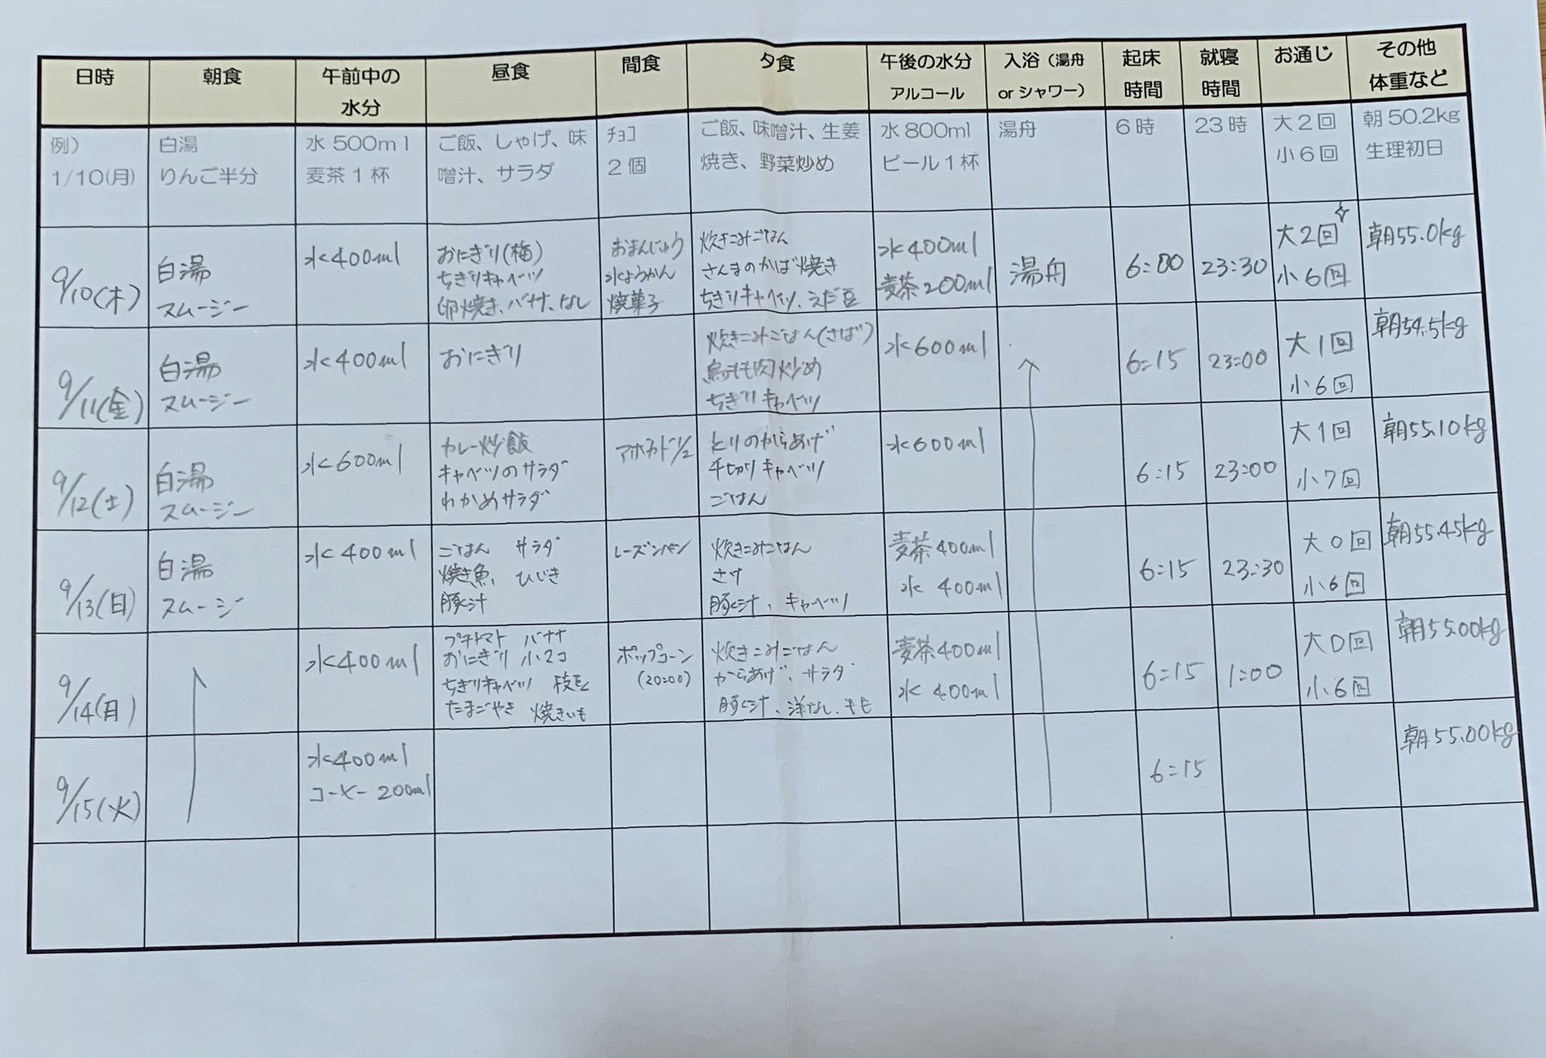 日時 朝食 午前中の水分 昼食 間食 夕食 午後の水分アルコール 入浴（湯舟 or シャワー） 起床時間 就寝時間 お通じ その他体重など
例）
1/10(月)
白湯
りんご半分
水500ml
麦茶1杯
ご飯、しゃげ、味
噌汁、サラダ
ﾁｮｺ
2個
ご飯、味噌汁、生姜
焼き、野菜炒め
水800ml
ビール1杯
湯舟
6時
23時
大2回
小6回
朝50.2kg
生理初日
9/10(木)
白湯
スムージー
水400ml
おにぎり(梅)
ちぎりキャベツ
卵焼き、バナナ、なし
おまんじゅう
水ようかん
焼菓子
炊きこみごはん
さんまのかば焼き
ちぎりキャベツ、えだ豆
水400ml
麦茶200ml
湯舟
6:00
23:30
大2回
小6回
朝55.0kg
9/11(金)
白湯
スムージー
水400ml
おにぎり
炊きこみごはん(さば)
鳥もも肉炒め
ちぎりキャベツ
水600ml
6:15
23:00
大1回
小6回
朝54.5kg
9/12(土)
白湯
スムージー
水600ml
カレー炒飯
キャベツのサラダ
わかめサラダ
アボカド1/2
とりのからあげ
千切りキャベツ
ごはん
水600ml
6:15
23:00
大1回
小7回
朝55.10kg
9/13(日)
白湯
スムージー
水400ml
ごはん サラダ
焼き魚、ひじき
豚汁
レーズンパン
炊きこみごはん
さけ
豚汁、キャベツ
麦茶400ml
水 400ml
6:15
23:30
大0回
小6回
朝55.45kg
9/14(月)
水400ml
プチトマト バナナ
おにぎり 小2コ
ちぎりキャベツ 枝豆
たまごやき 焼きいも
ポップコーン
(20:00)
炊きこみごはん
からあげ、サラダ
豚汁、洋なし、もも
麦茶400ml
水 400ml
6:15
1:00
大0回
小6回
朝55.00kg
9/15(火)
水400ml
コーヒー 200ml
6:15
朝55.00kg